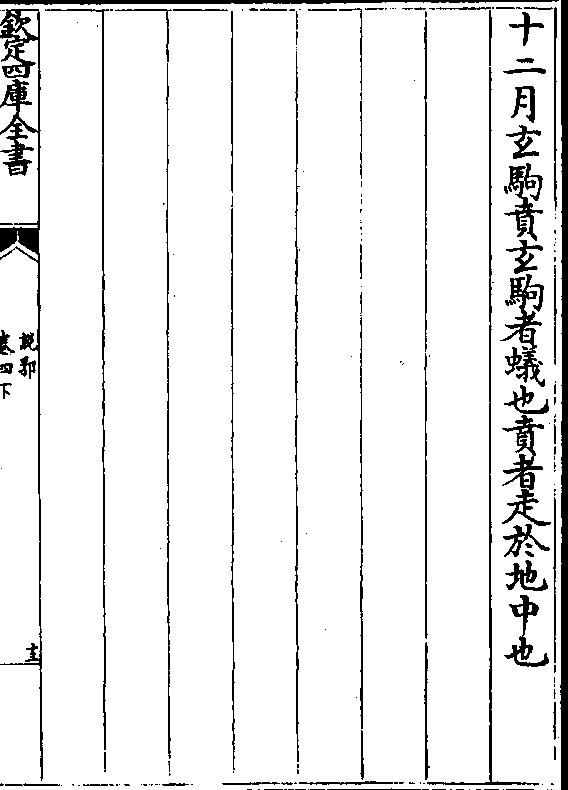 十二月玄駒賁玄駒者蟻也賁者走於地中也
欽定四庫全書
說郛
卷四下